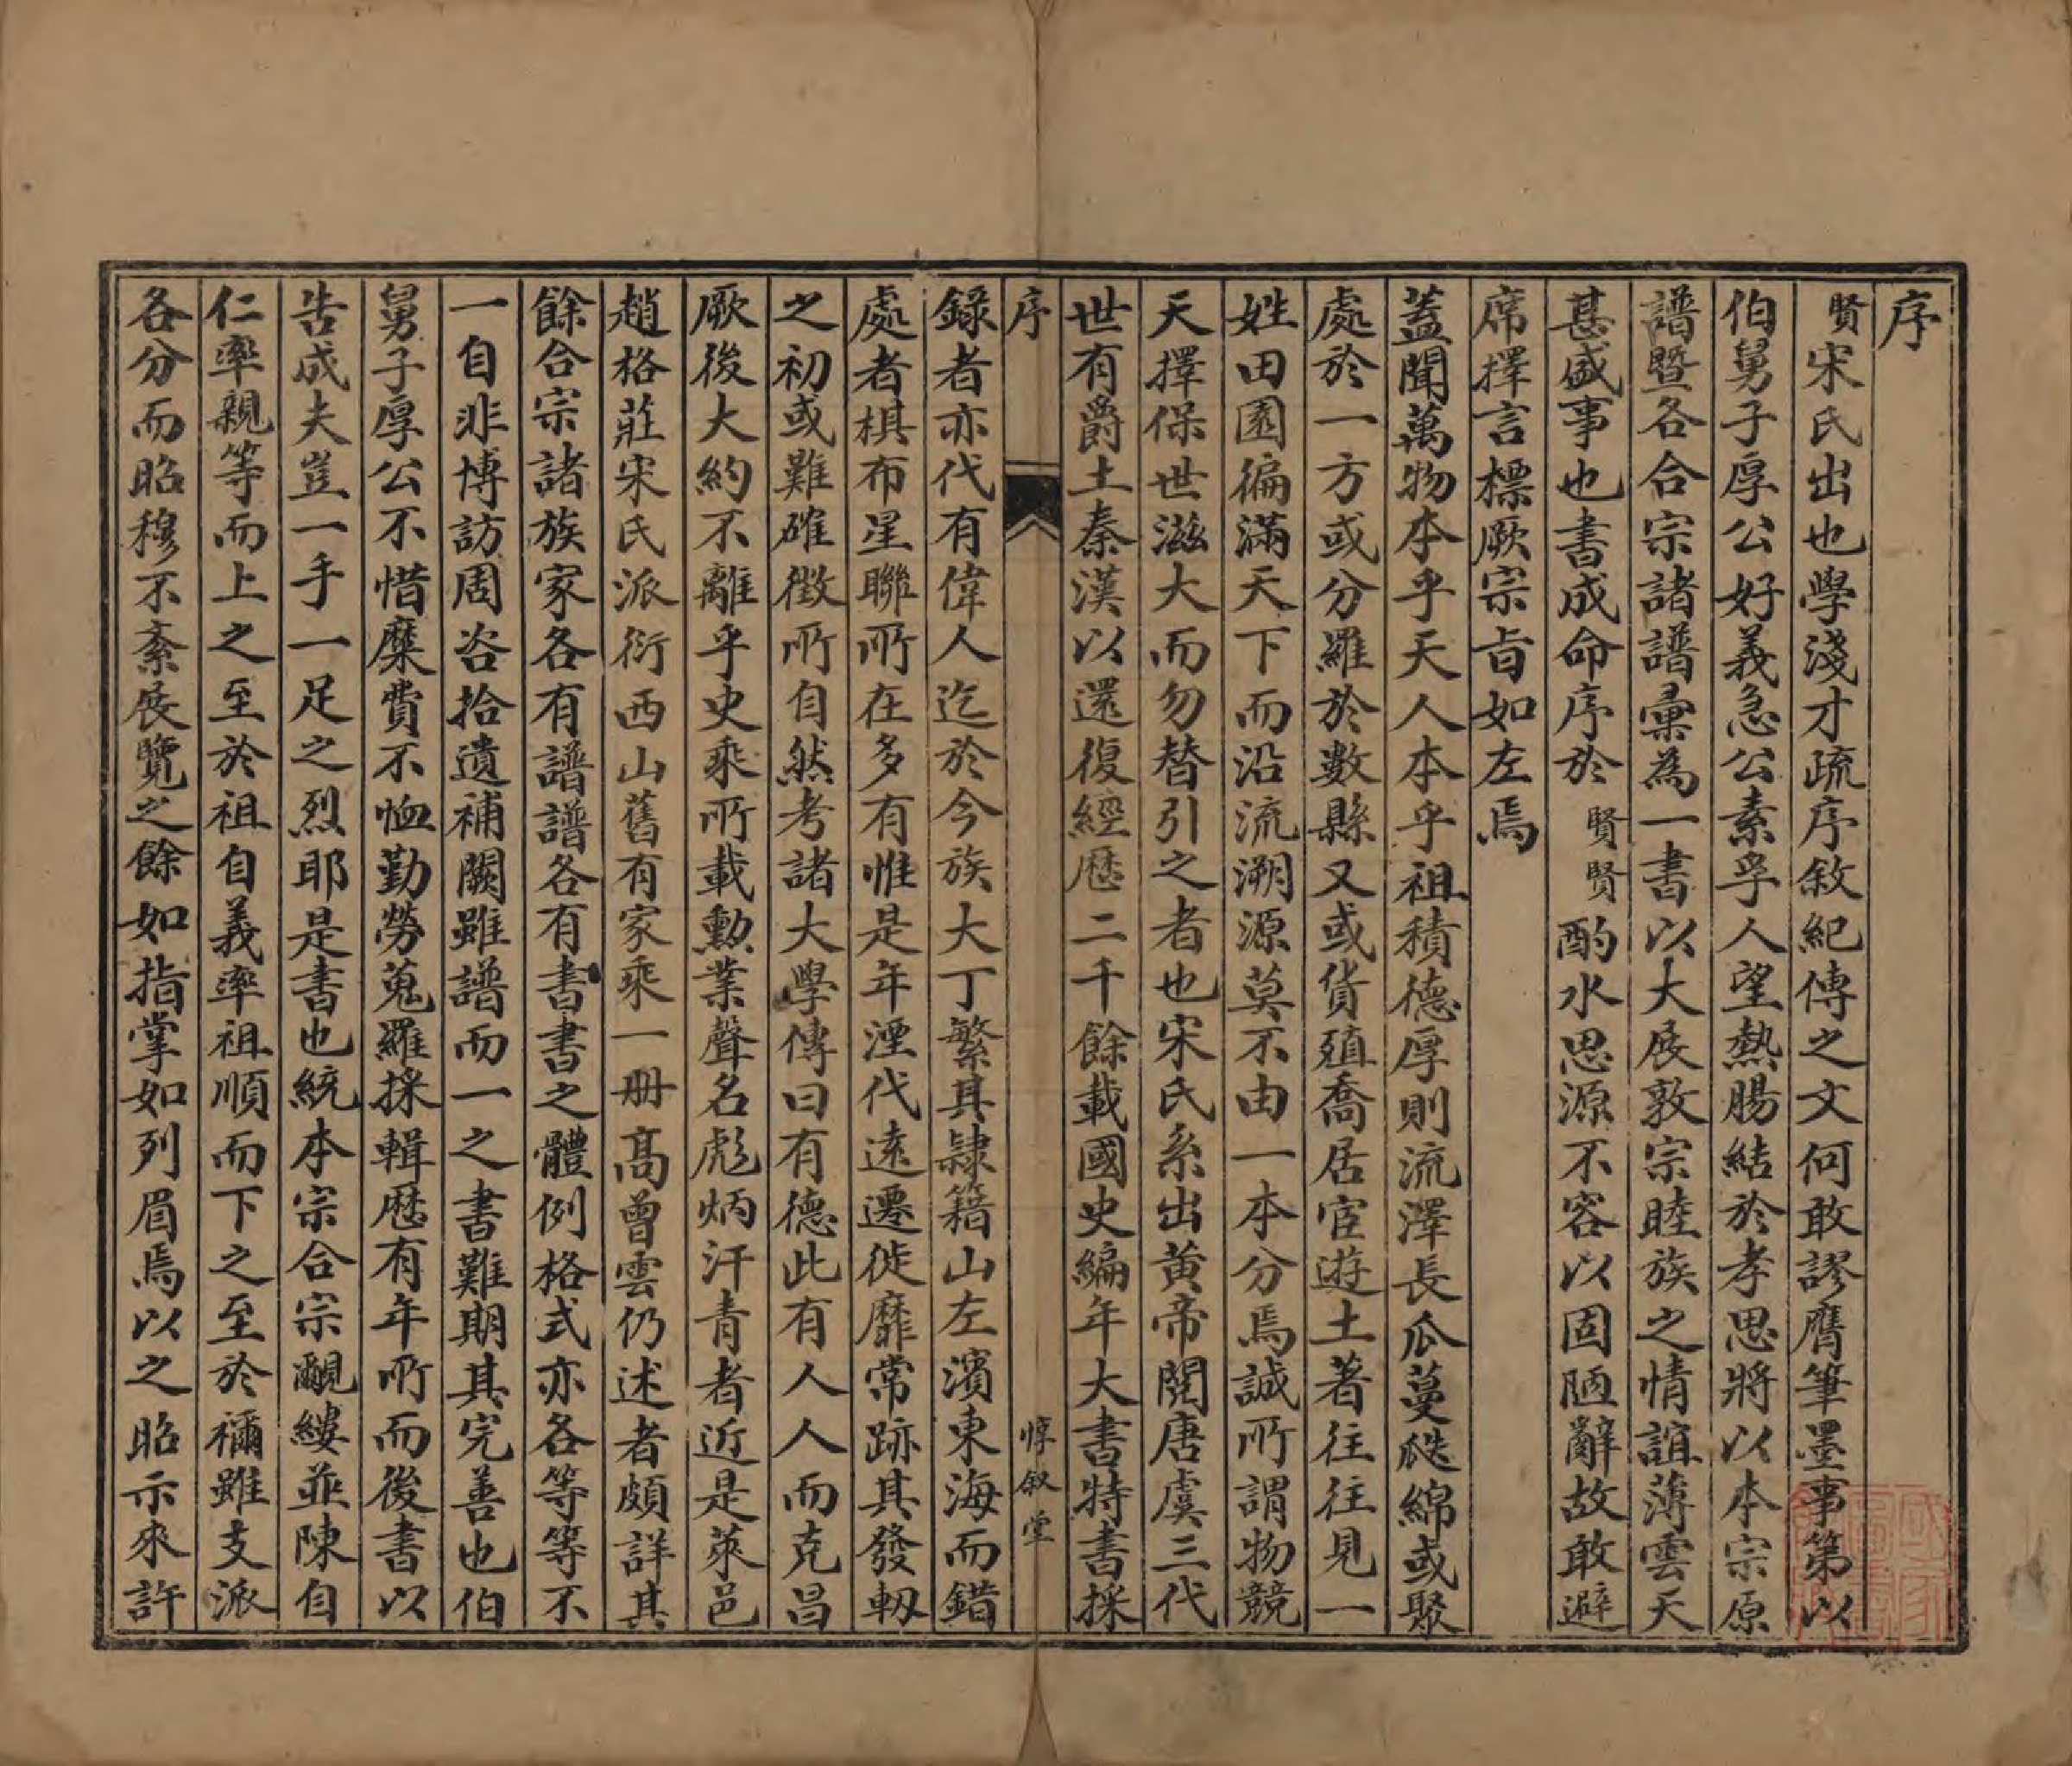 序
賢宋氏出也學淺才疏序敘紀傳之文何敢謬膺筆墨事第以
伯舅子厚公好義急公素孚人望熱腸結於孝思將以本宗原
譜暨各合宗諸譜彙為一書以大展敦宗睦族之情誼薄雲天
甚盛事也書成命序於賢賢酌水思源不容以固陋辭故敢避
席擇言標厥宗旨如左焉
蓋聞萬物本乎天人本乎祖積德厚則流澤長瓜蔓瓞綿或聚
處於一方或分羅於數縣又或貨殖喬居宦遊土著往往見一
姓田園徧滿天下而沿流溯源莫不由一本分焉誠所謂物競
天擇保世滋大而勿替引之者也宋氏系出黃帝閱唐虞三代
世有爵土秦漢以還復經歷二千餘載國史編年大書特書採
序
惇叙堂
錄者亦代有偉人迄於今族大丁繁其隸籍山左濱東海而錯
處者棋布星聯所在多有惟是年湮代遠遷徙靡常跡其發軔
之初或難確徵所自然考諸大學傳曰有德此有人人而克昌
厥後大約不離乎史乘所載勳業聲名彪炳汗青者近是萊邑
趙格莊宋氏派衍西山舊有家乘一册高曾雲仍述者頗詳其
餘合宗諸族家各有譜譜各有書書之體例格式亦各等等不
一自非博訪周咨拾遺補闕雖譜而一之書難期其完善也伯
舅子厚公不惜糜費不恤勤勞蒐羅採輯歷有年所而後書以
告成夫豈一手一足之烈耶是書也統本宗合宗覼縷並陳自
仁率親等而上之至於祖自義率祖順而下之至於禰雖支派
各分而昭穆不紊展覽之餘如指掌如列眉焉以之昭示來許